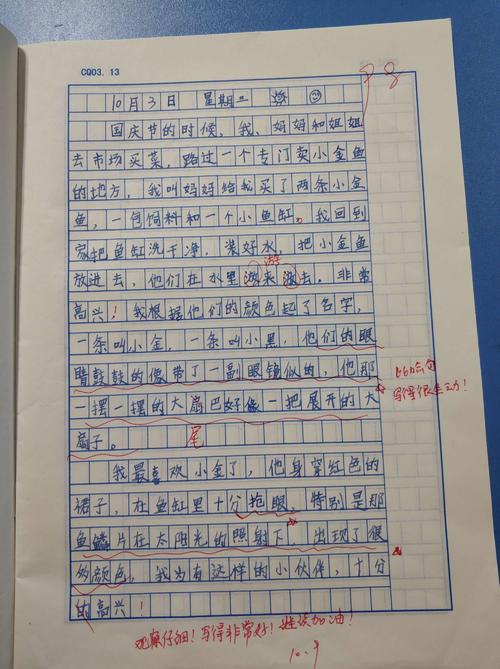 CQ03.13
10月3日 星期二
国庆节的时候，我、妈妈和姐姐
去市场买菜，路过一个专门卖小金鱼
的地方，我叫妈妈给我买了两条小金
鱼，一包饲料和一个小鱼缸。我回到
家把鱼缸洗干净，装好水，把小金鱼
游
放进去，他们在水里游来游去。非常
高兴！我根据他们的颜色起了名字，
一条叫小金，一条叫小黑，他们的眼
睛鼓鼓的像带了一副眼镜似的，他那
比喻句
一摆一摆的大扇巴好像一把展开的大
写得很生动！
扇子。
尾
我最喜欢小金了，他身穿红色的
裙子，在鱼缸里十分抢眼，特别是那
鱼鳞片在太阳光的照射下，出现了很
多颜色。我为有这样的小伙伴，十分
的高兴！
观察仔细！写得非常好！继续加油！
10.9